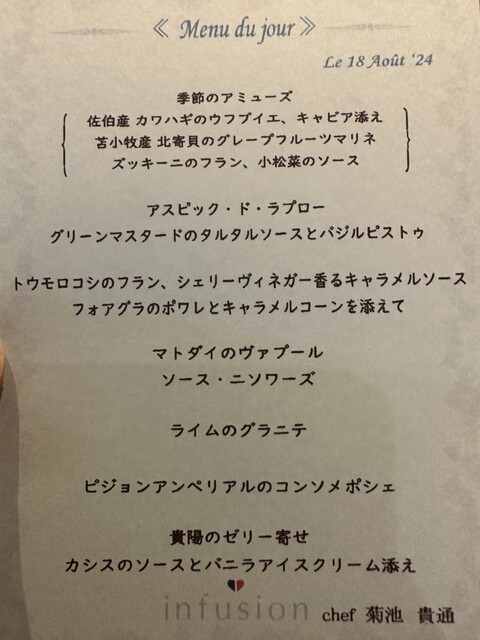 《 Menu du jour 》
Le 18 Août ‘24
季節のアミューズ
佐伯産 カワハギのウフブイエ、キャビア添え
苫小牧産 北寄貝のグレープフルーツマリネ
ズッキーニのフラン、小松菜のソース
アスピック・ド・ラプロー
グリーンマスタードのタルタルソースとバジルピストゥ
トウモロコシのフラン、シェリーヴィネガー香るキャラメルソース
フォアグラのポワレとキャラメルコーンを添えて
マトダイのヴァプール
ソース・ニソワーズ
ライムのグラニテ
ピジョンアンペリアルのコンソメポシェ
貴陽のゼリー寄せ
カシスのソースとバニラアイスクリーム添え
infusion chef 菊池 貴通